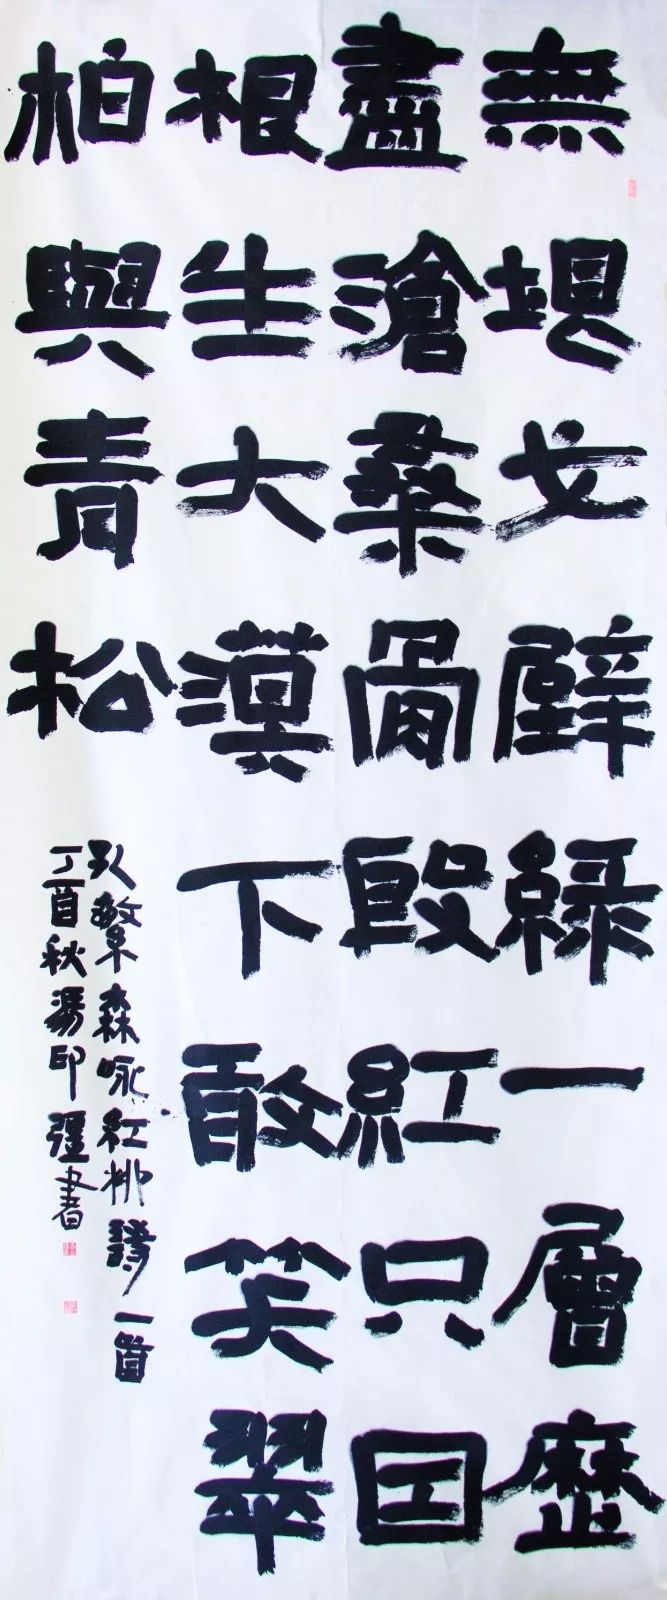 無垠戈壁綠一層歷
盡滄桑骨殷紅只因
根生大漠下敢笑翠
柏與青松
孔繁森咏紅柳詩一首
丁酉秋馮印彊書